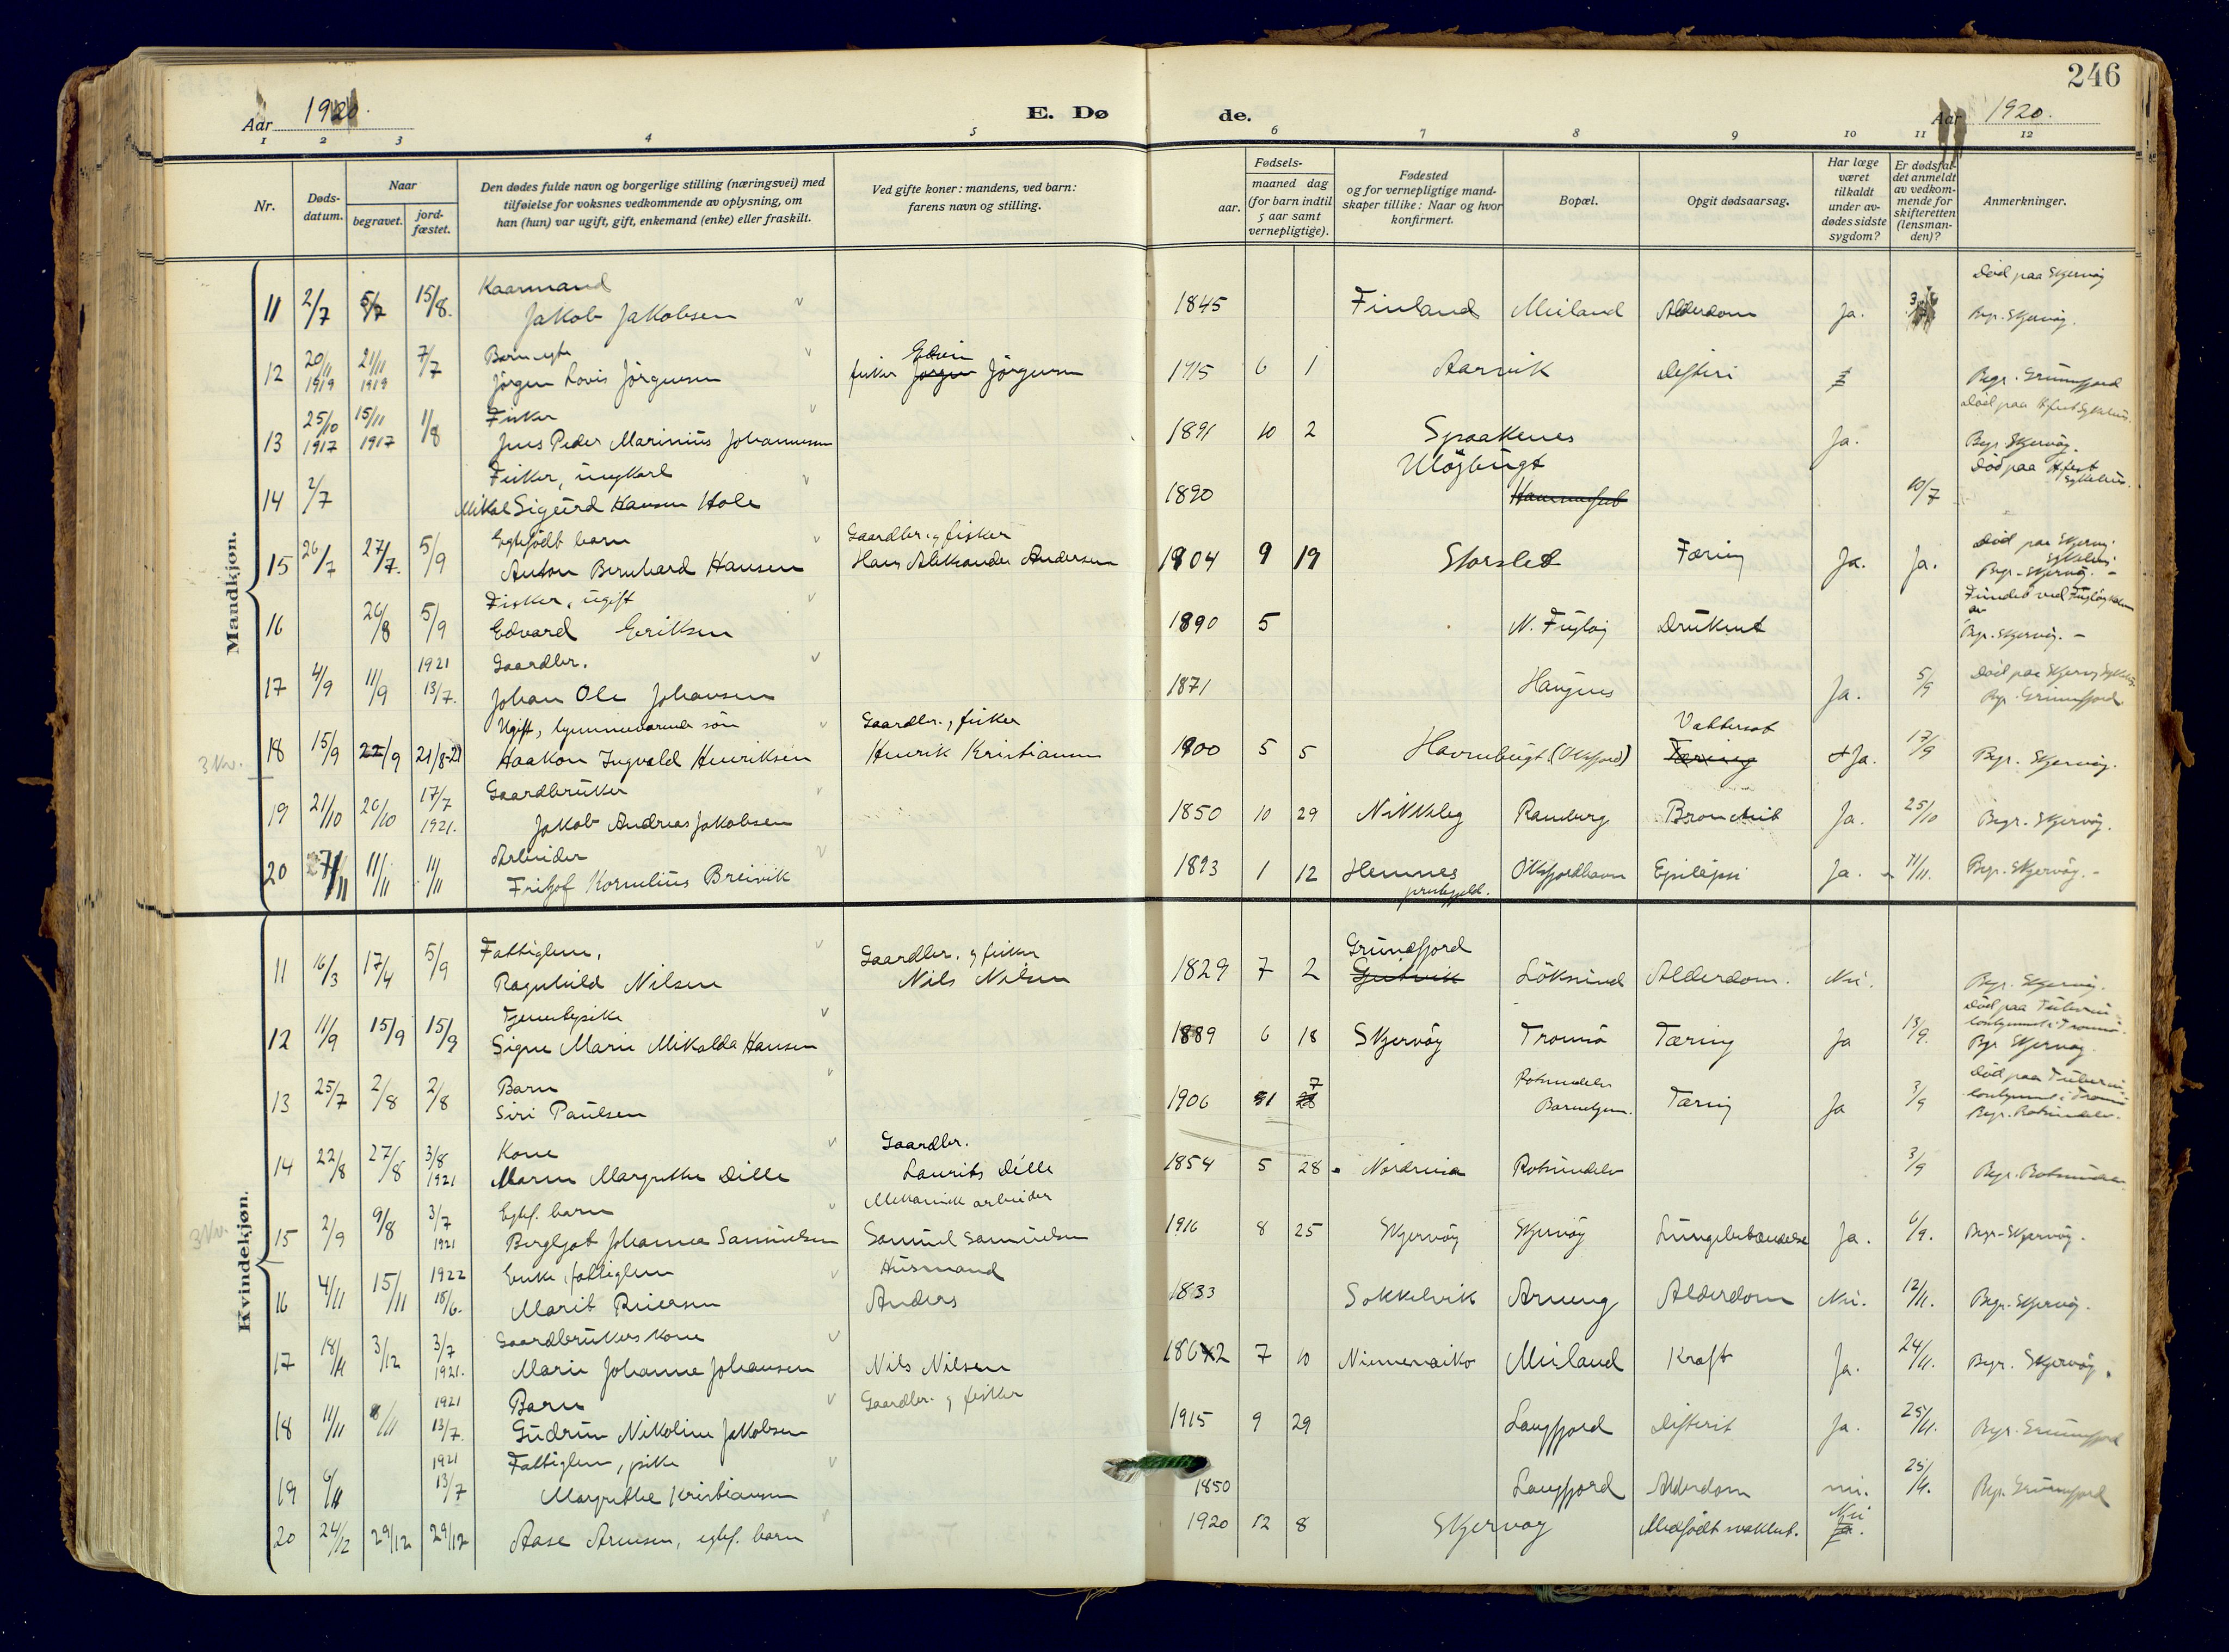 246
Aar 1920.
E. Dø
de.
Aar 1920.
1 2 3 4 5 6 7 8 9 10 11 12
Nr.
Døds-
datum.
Naar
begravet.
jord-
fæstet.
Den dødes fulde navn og borgerlige stilling (næringsvei) med
tilføielse for voksnes vedkommende av oplysning, om
han (hun) var ugift, gift, enkemand (enke) eller fraskilt.
Ved gifte koner: mandens, ved barn:
farens navn og stilling.
Fødsels-
aar.
maaned dag
(for barn indtil
5 aar samt
vernepligtige).
Fødested
og for vernepligtige mand-
skaper tillike: Naar og hvor
konfirmert.
Bopæl.
Opgit dødsaarsag.
Har læge
været
tilkaldt
under av-
dødes sidste
sygdom?
Er dødsfal-
det anmeldt
av vedkom-
mende for
skifteretten
(lensman-
den)?
Anmerkninger.
Mandkjøn.
Kaarmand Død paa Skjervøy
11 2/7 5/7 15/8. Jakob Jakobsen 1845 Finland Meiland Alderdom Ja. Begr. Skjervøy.
Barn egte Edvin
12 20/11 1919 21/11 1919 7/7 Jørgen Lovis Jørgensen fisker Jørgen Jørgensen 1915 6 1 Aarvik Difteri Begr. Grunnfjord
Fisker
13 25/10 1917 15/11 1917 1/8 Jens Peder Marinius Johannesen 1891 10 2 Spaakenes Ja. Begr. Skjervøy.
Fisker, ungkarl Uløybugt Død paa
14 2/7 Mikal Sigurd Hansen Hole 1890 10/7
Egtefødt barn Gaardbr. og fisker Død paa Skjervøy
15 26/7 27/7. 5/9 Anton Bernhard Hansen Hans Aleksander Andersen 1904 9 19 Storslet Tæring Ja. Ja. Begr. Skjervøy. -
Fisker, ugift Fundet ved
16 26/8 5/9 Edvard Eriksen 1890 5 N. Fugløy Druknet Begr. Skjervøy. -
1921 Gaardbr. Død paa Skjervøy
17 4/9 11/9 13/7. Johan Ole Johansen 1871 Haugnes Ja. 5/9 Begr. Grunnfjord
Ugift, hjemmeværende søn Gaardbr., fisker Vattersot
3 Nov. 18 15/9 22/9 21/8-21 Haakon Ingvald Henriksen Henrik Kristiansen 1900 5 5 Havnebugt (Oksfjord) Tæring Ja. 17/9 Begr. Skjervøy.
Gaardbruker
19 21/10 26/10 17/7 1921. Jakob Andreas Jakobsen 1850 10 29 Nikkeby Ramberg Bronchit Ja. 25/10 Begr. Skjervøy.
Arbeider
20 27/11 11/11 11/11 Fritjof Kornelius Breivik 1893 1 12 Hemnes prestegjeld. Oksfjordhavn Epilepsi Ja. 11/11. Begr. Skjervøy. -
Kvindekjøn.
Fattiglem, Gaardbr. og fisker Grundfjord
11 16/3 17/4 5/9 Ragnhild Nilsen Nils Nilsen 1829 7 2 Løksund Alderdom. Nei. Begr. Skjervøy.
Tjenestepike Død paa
12 11/9 15/9 15/9 Signe Marie Mikalda Hansen 1889 6 18 Skjervøy Tromsø Tæring Ja 13/9. Begr. Skjervøy.
Barn 7 Rotsundelv Død paa
13 25/7 2/8 2/8 Siri Paulsen 1906 28 Barnehjem. Tæring Ja 3/9 Begr. Rotsundelv.
Kone Gaardbr.
14 22/8 27/8 3/8 1921 Maren Margrethe Dille Laurits Dille 1854 5 28 Nordreisa Rotsundelv 3/9 Begr. Rotsundelv
Egtef. barn Mekanisk arbeider
3 Nov. 15 2/9 9/8 3/7 1921 Bergljot Johanna Samuelsen Samuel Samuelsen 1916 8 25 Skjervøy Skjervøy Lungebetændelse Ja. 6/9. Begr. Skjervøy.
Enke, fattiglem Husmand
16 4/11 15/11 1922 18/6. Marit Reiersen Anders 1833 Sokkelvik Arneng Alderdom Nei. 12/11. Begr. Skjervøy.
Gaardbrukers kone
17 18/11 3/12 3/7 1921. Marie Johanne Johansen Nils Nilsen 1862 7 10 Niemenaiko Meiland Kræft Ja. 24/11. Begr. Skjervøy.
Barn Gaardbr. og fisker
18 11/11 8/11 1921 13/7. Gudrun Nikoline Jakobsen 1915 9 29 Langfjord Difterit Ja. 25/11. Begr. Grunnfjord
Fattiglem, pike
19 6/11 1921 13/7 Margrethe Kristiansen 1850 Langfjord Alderdom nei. 25/11. Begr. Grunnfjord
20 24/12 29/12 29/12 Aase Arnesen, egtef. barn 1920 12 8 Skjervøy Medfødt svakhet. Nei Ja.